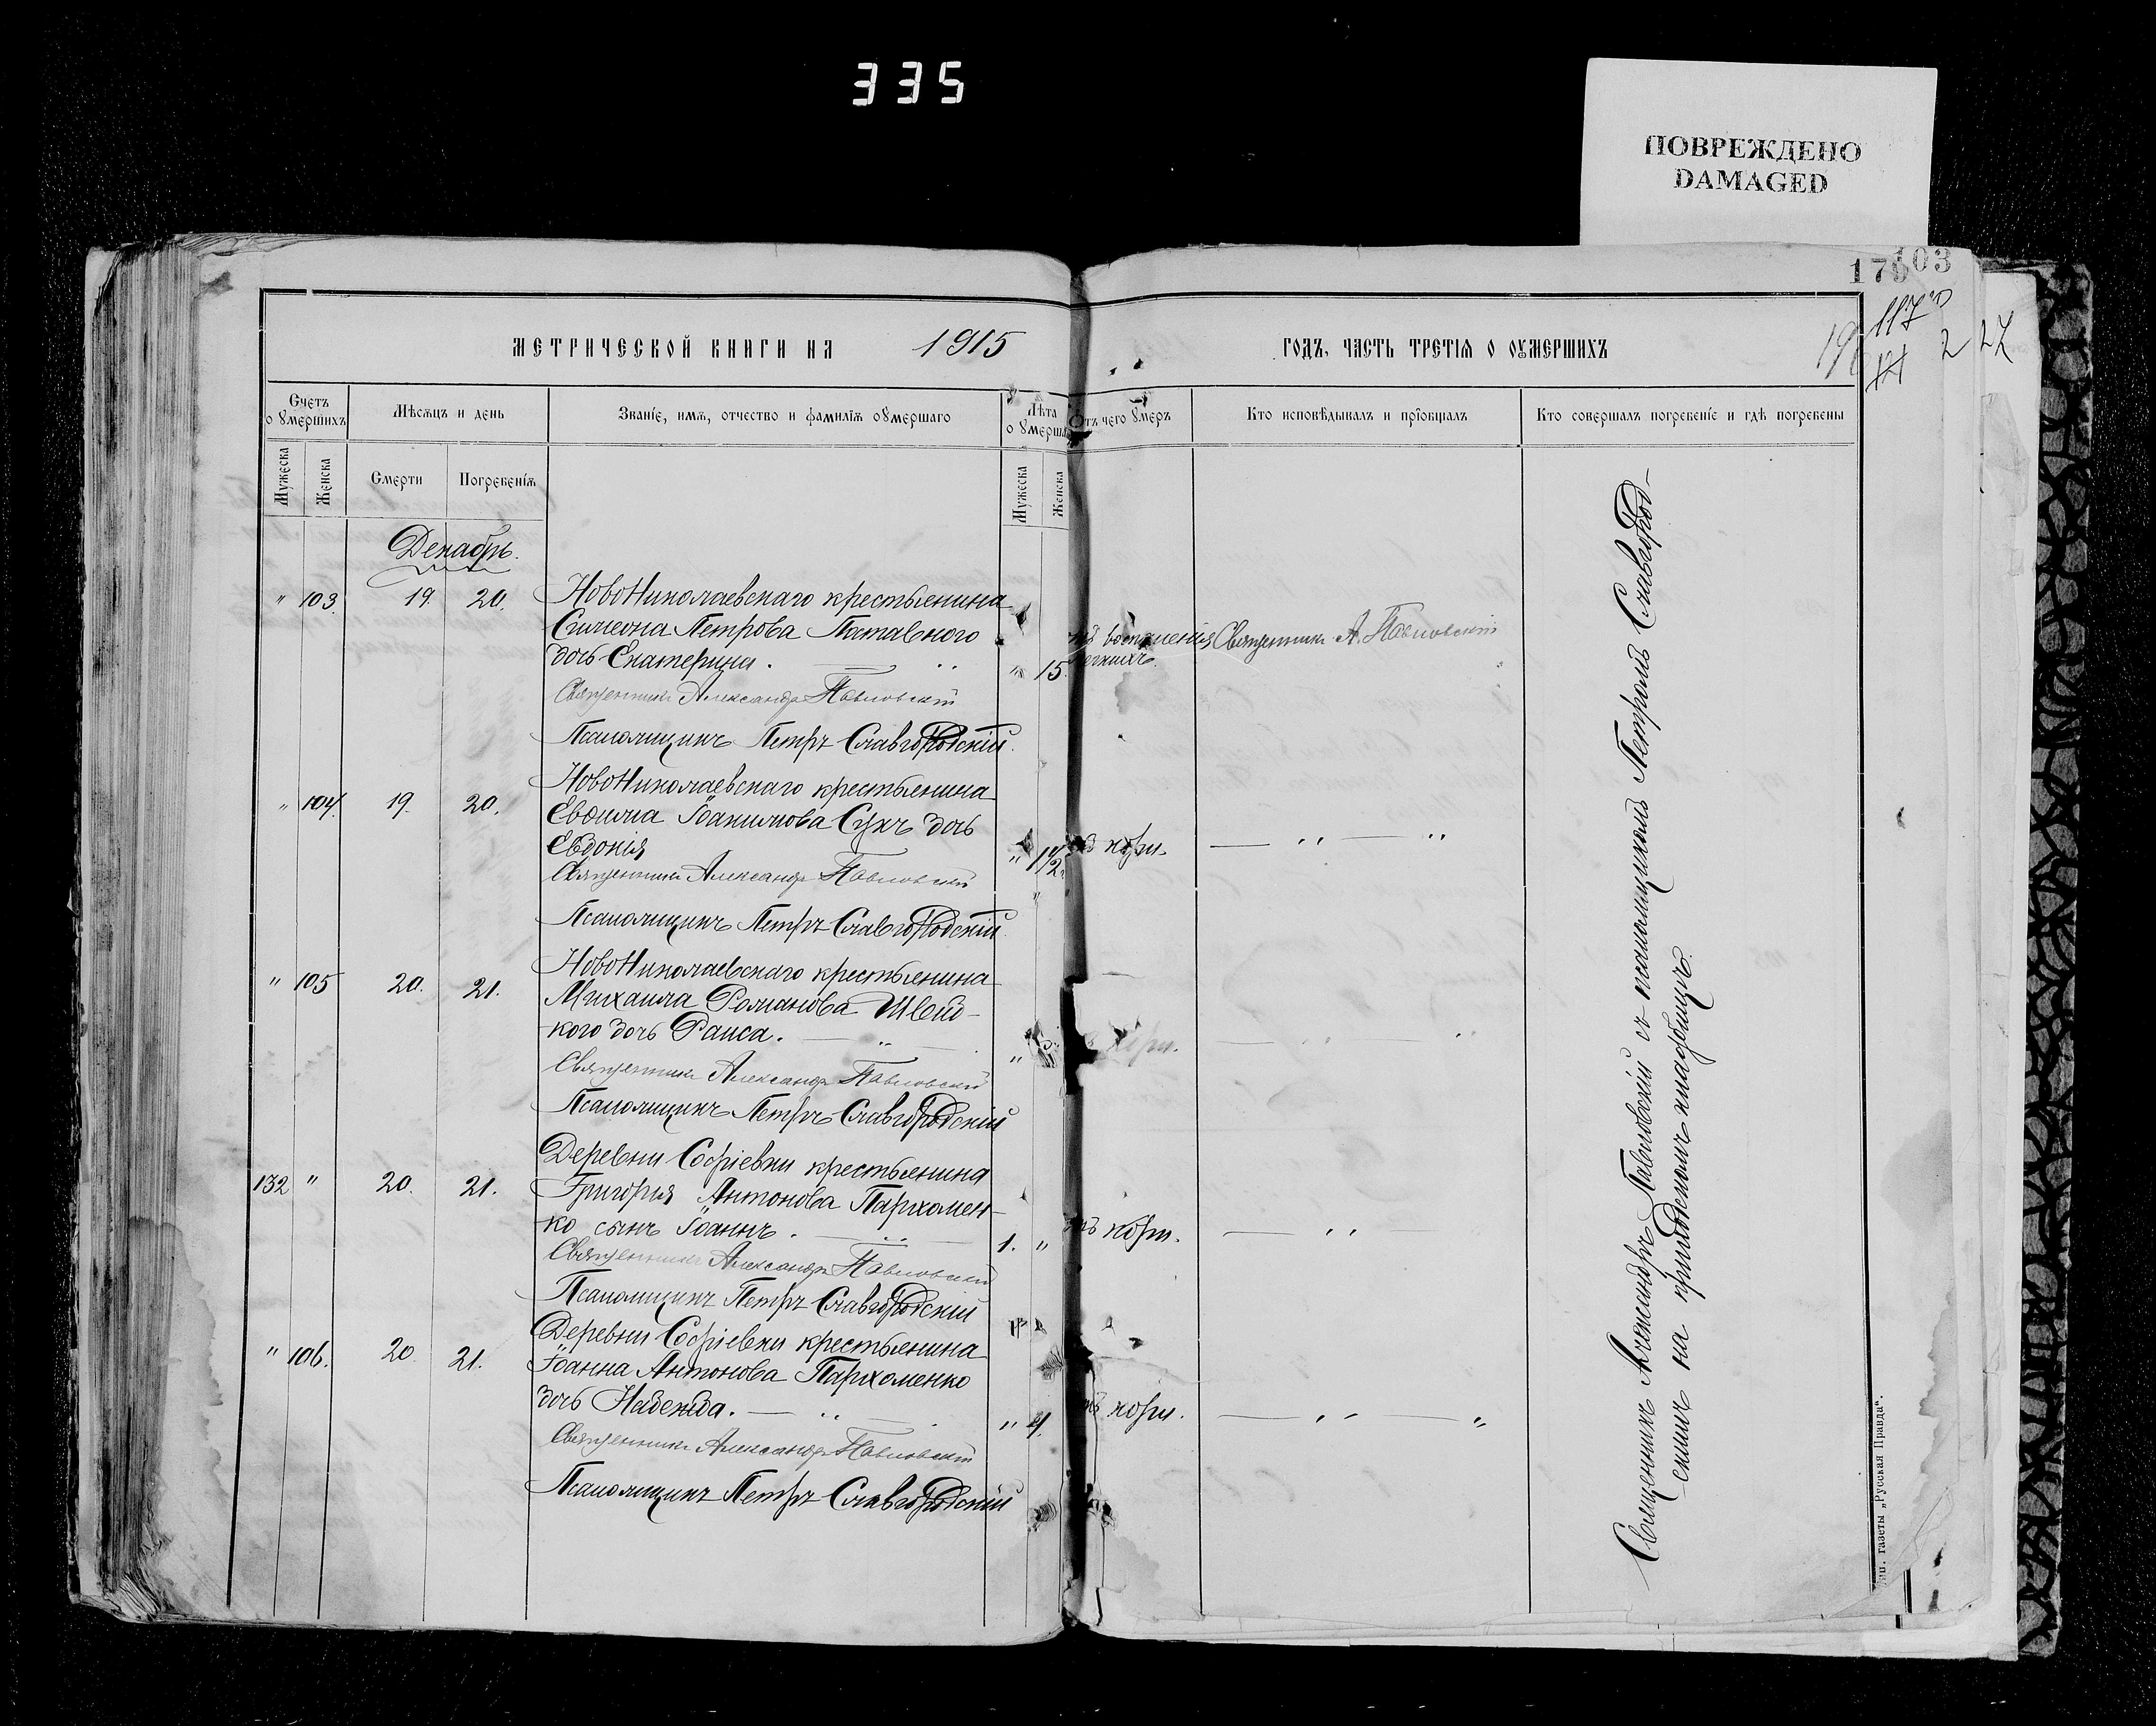 335
ПОВРЕЖДЕНО
DAMAGED
103
МЕТРИЧЕСКОЙ КНИГИ НА 1915 ГОДЪ, ЧАСТЬ ТРЕТІЯ О ОУМЕРШИХЪ
117
227
Счетъ оумершихъ
Мѣсяцъ и день
Званіе, имя, отчество и фамилія оумершаго
Лѣта оумерша
Отъ чего умеръ
Кто исповѣдывалъ и пріобщалъ
Кто совершалъ погребеніе и гдѣ погребены
Мужеска
Женска
Смерти
Погребенія
Мужеска
Женска
Декабрь.
" 103. 19. 20. НовоНиколаевскаго крестьянина
Симеона Петрова
дочь Екатерина. " 15. воспаленія легкихъ. Священникъ А. Павловскій
Священникъ Александръ Павловскій
Псаломщикъ Петръ Славгородскій.
" 104. 19. 20. НовоНиколаевскаго крестьянина
Евфима Іоакимова Сухъ дочь
Евдокія " 1/2 кори. — " — "
Священникъ Александръ Павловскій
Псаломщикъ Петръ Славгородскій
" 105 20. 21. НовоНиколаевскаго крестьянина
Михаила Романова Швид-
кого дочь Раиса. — " — " кори. — " — "
Священникъ Александръ Павловскій
Псаломщикъ Петръ Славгородскій
132 " 20. 21. Деревни Софіевки крестьянина
Григорія Антонова Пархомен-
ко сынъ Іоаннъ. — " — 1. " кори. — " —
Священникъ Александръ Павловскій
Псаломщикъ Петръ Славгородскій
" 106. 20 21. Деревни Софіевки крестьянина
Іоанна Антонова Пархоменко
дочь Надежда. — " — " 4. кори. — " — "
Священникъ Александръ Павловскій
Псаломщикъ Петръ Славгородскій
Священникъ Александръ Павловскій съ псаломщикомъ Петромъ Славгород-
скимъ на приходскомъ кладбищѣ.
тип. газеты „Русская Правда".